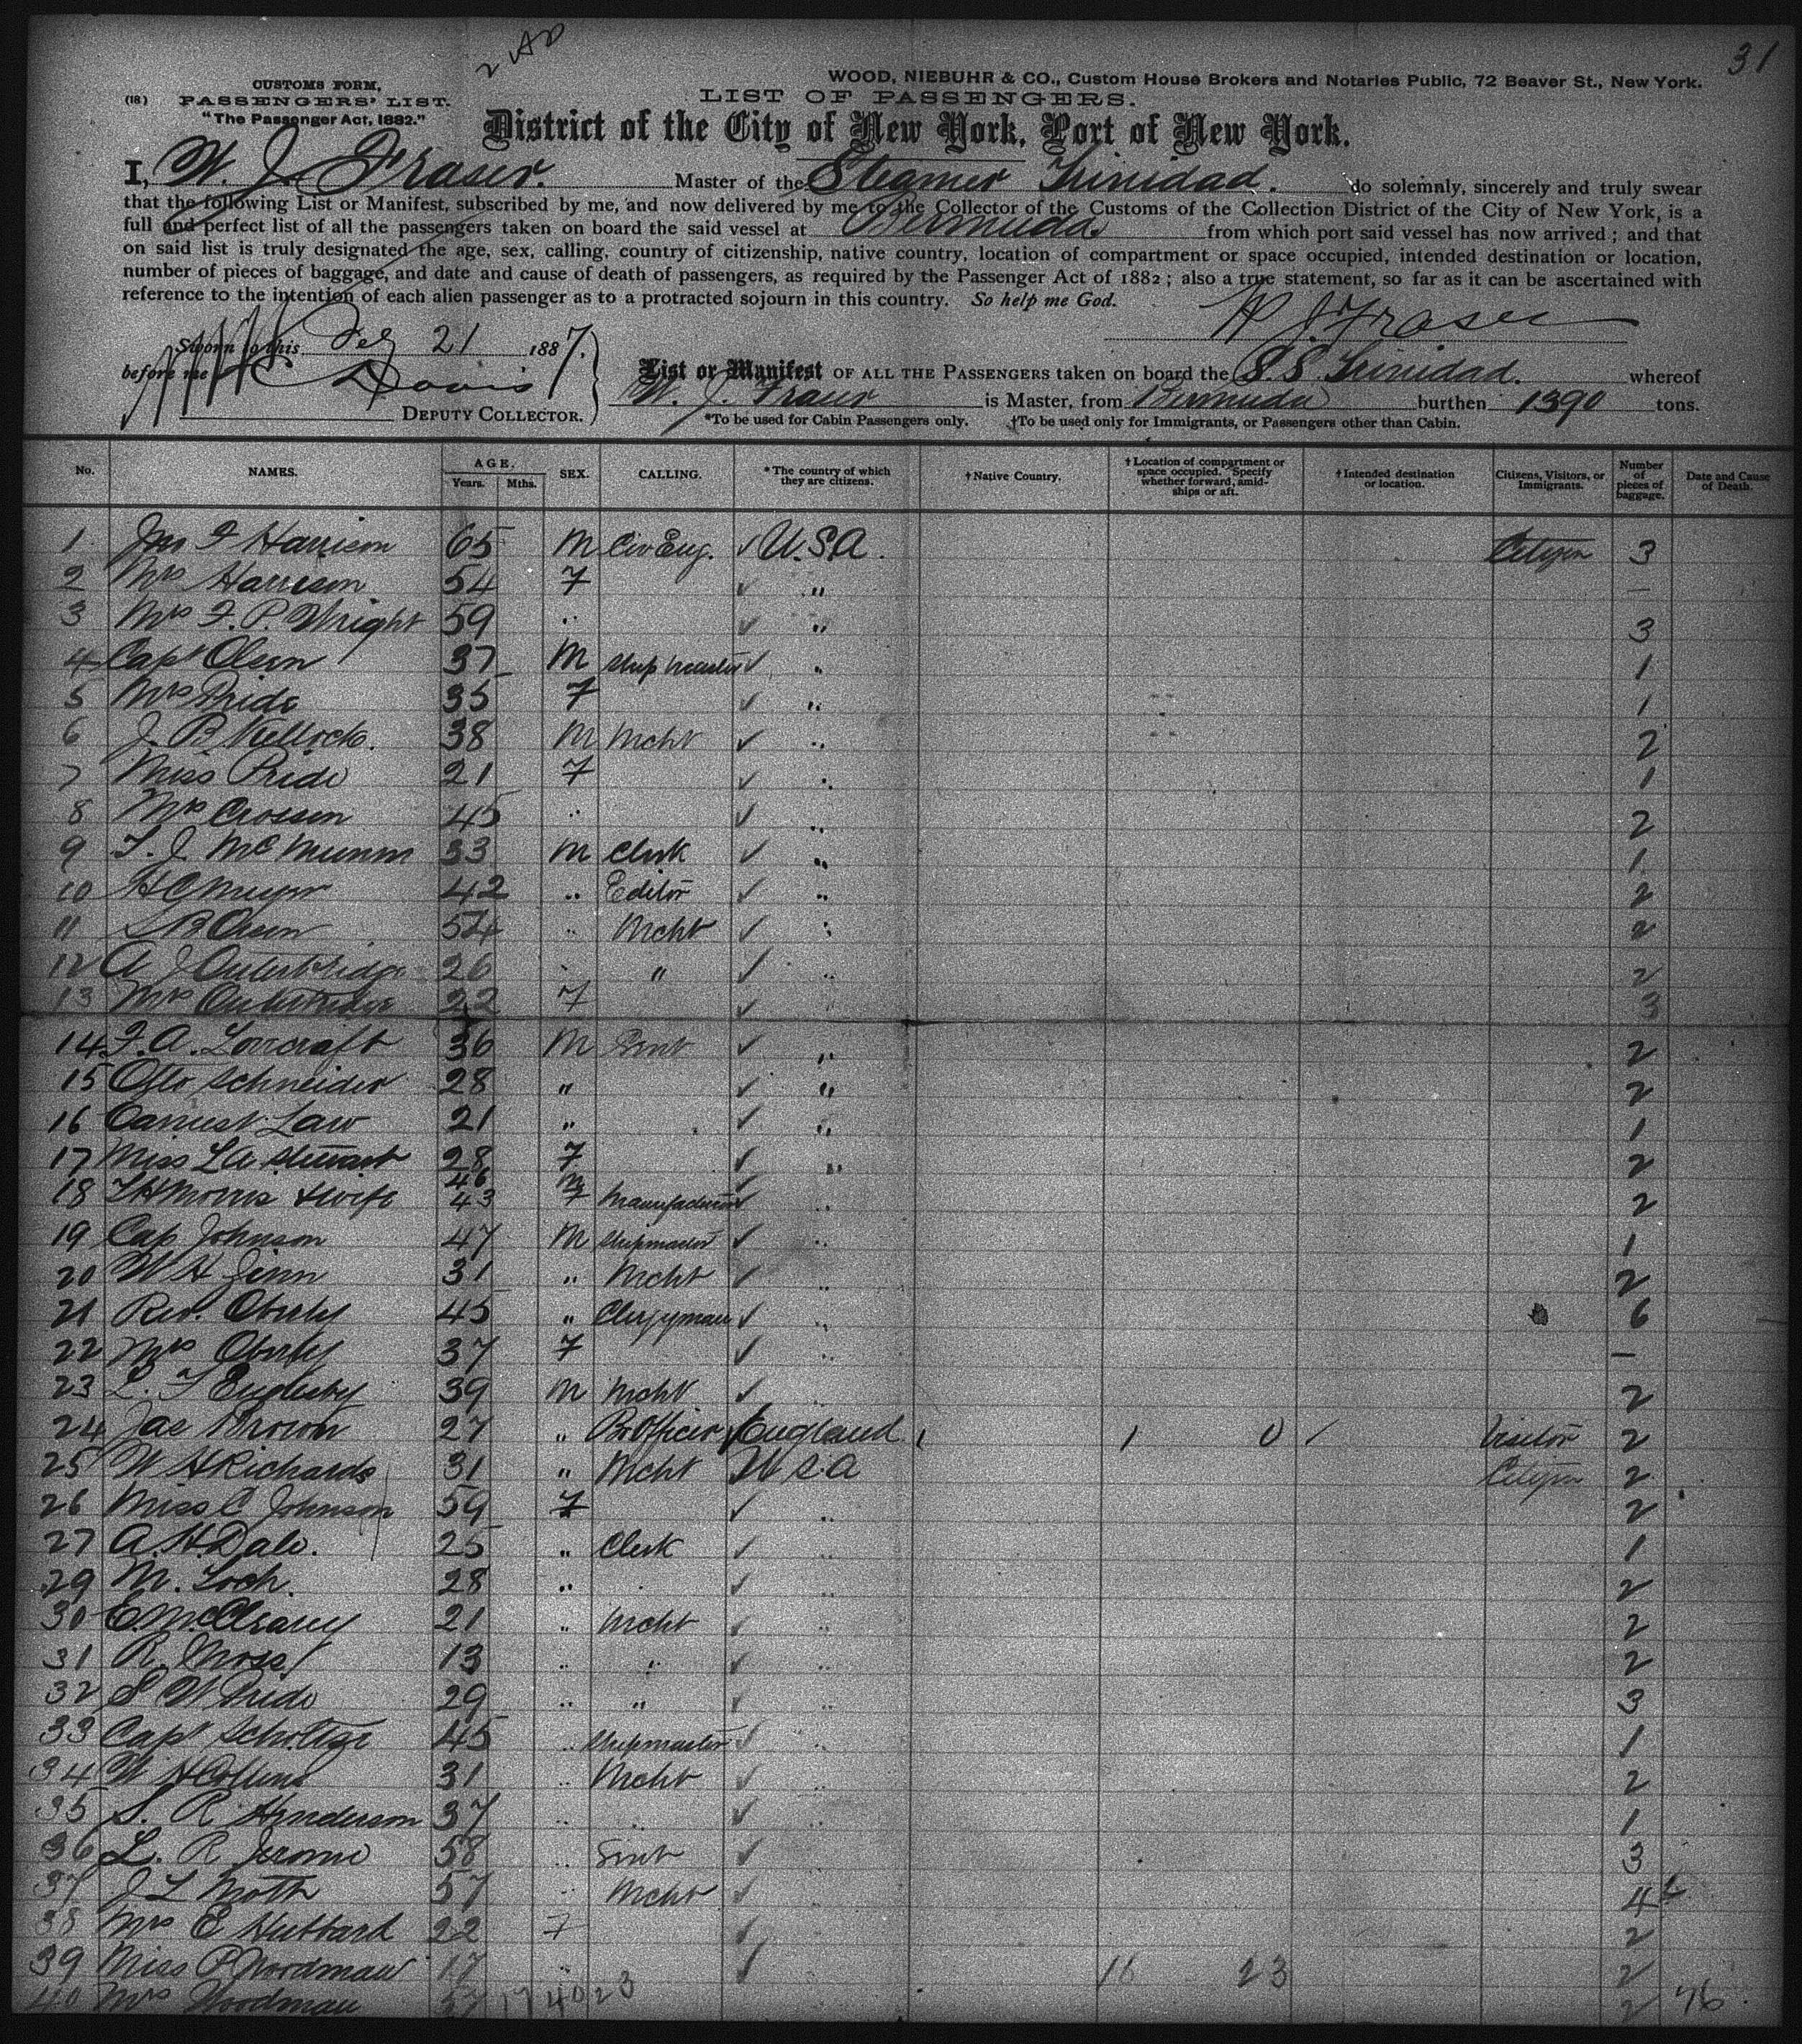 31
2 AD
CUSTOMS FORM,
(18) PASSENGERS' LIST.
"The Passenger Act, 1882."
WOOD, NIEBUHR & CO., Custom House Brokers and Notaries Public, 72 Beaver St., New York.
LIST OF PASSENGERS.
District of the City of New York, Port of New York.
I, W. J. Fraser. Master of the Steamer Trinidad. do solemnly, sincerely and truly swear
that the following List or Manifest, subscribed by me, and now delivered by me to the Collector of the Customs of the Collection District of the City of New York, is a
full and perfect list of all the passengers taken on board the said vessel at Bermuda from which port said vessel has now arrived; and that
on said list is truly designated the age, sex, calling, country of citizenship, native country, location of compartment or space occupied, intended destination or location,
number of pieces of baggage, and date and cause of death of passengers, as required by the Passenger Act of 1882; also a true statement, so far as it can be ascertained with
reference to the intention of each alien passenger as to a protracted sojourn in this country. So help me God.
W J Fraser
Sworn to this Feb 21 1887.
before me Davis
DEPUTY COLLECTOR.
List or Manifest OF ALL THE PASSENGERS taken on board the S.S. Trinidad. whereof
W. J. Fraser is Master, from Bermuda burthen 1390 tons.
*To be used for Cabin Passengers only. †To be used only for Immigrants, or Passengers other than Cabin.
No. NAMES. AGE. Years. Mths. SEX. CALLING. *The country of which they are citizens. †Native Country. †Location of compartment or space occupied. Specify whether forward, amidships or aft. †Intended destination or location. Citizens, Visitors, or Immigrants. Number of pieces of baggage. Date and Cause of Death.
1 Jas F Harrison 65 M Civ Eng. ✓ U.S.A. Citizen 3
2 Mrs Harrison 54 F ✓ " —
3 Mrs F. P. Wright 59 " ✓ " 3
4 Capt Olsen 37 M Ship master ✓ " 1
5 Mrs Pride 35 F ✓ " 1
6 J. B. Kellock. 38 M Mcht ✓ " 2
7 Miss Pride 21 F ✓ " 1
8 Mrs Crossen 45 " ✓ " 2
9 T. J. McMunn 33 M Clerk ✓ " 1
10 H C Meyer 42 " Editor ✓ " 2
11 54 " Mcht ✓ " 2
12 A J Outerbridge 26 " " ✓ " 2
13 Mrs Outerbridge 22 F ✓ 3
14 F. A. 36 M ✓ " 2
15 Otto Schneider 28 " ✓ " 2
16 Earnest Law 21 " ✓ " 1
17 Miss L A Stewart 28 F ✓ " 2
18 Morris & wife 46 43 M F Manufacturer ✓ " 2
19 Cap Johnson 47 M Shipmaster ✓ " 1
20 W H 31 " Mcht ✓ " 2
21 Rev. Oberly 45 " Clergyman ✓ " 6
22 Mrs Oberly 37 F ✓ " —
23 L. T Englesby 39 M Mcht ✓ 2
24 Jas Brown 27 " Officer England 1 0 / Visitor 2
25 W H Richards 31 " Mcht U S A Citizen 2
26 Miss C Johnson 59 F ✓ " 2
27 A. H. Dale. 25 " Clerk ✓ " 1
29 M. Loch. 28 " ✓ " 2
30 E. McCleary 21 " Mcht ✓ " 2
31 R. Moss 13 " " ✓ " 2
32 S W Pride 29 " " ✓ " 3
33 Capt Scholtze 45 " Shipmaster ✓ " 1
34 W H Collins 31 " Mcht ✓ " 2
35 S. R Henderson 37 " " ✓ " 1
36 L. R Jerome 58 " ✓ 3
37 J L Mott 57 " Mcht ✓ 4
38 Mrs E Hubbard 22 F ✓ 2
39 Miss P Woodman 17 " ✓ 16 23 2
40 Mrs Woodman 57 17 40 23 2 76